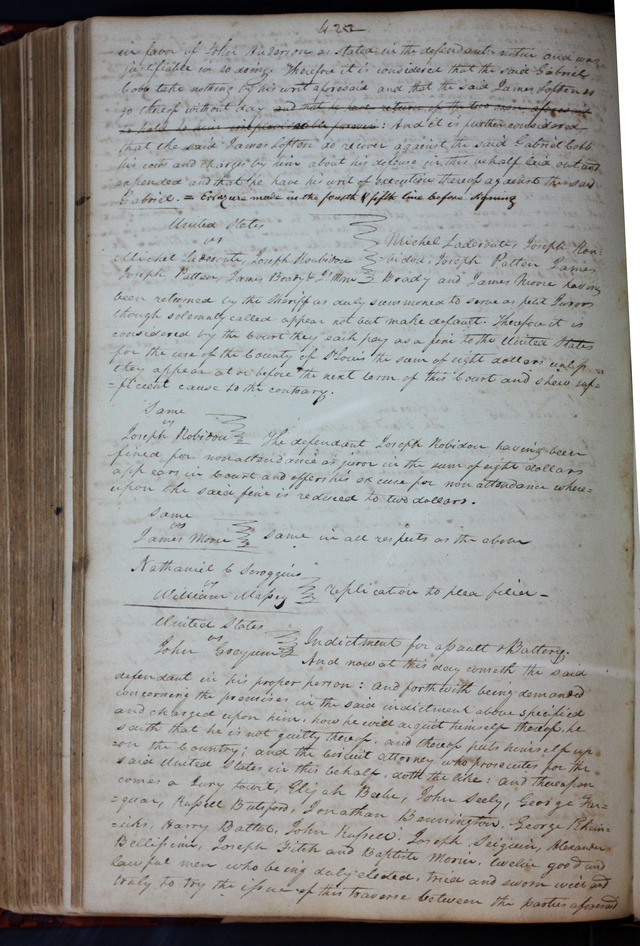 422
in favor of John Anderson as stated in the defendants notice and was
justifiable in so doing. Therefore it is considered that the said Gabriel
Cobb take nothing by his writ aforesaid and that the said James Lofton
go thereof without day and that he have return of the two
to hold to him irreplevisable forever: And it is further considered
that the said James Lofton do recover against the said Gabriel Cobb
his costs and charges by him about his defense in this behalf laid out and
expended and that he have his writ of execution thereof against the said
Gabriel. = Erazure made in the fourth & fifth line before signing
United States
vs
Michel Laderoute, Joseph Robidou
Joseph Patten, James Brady & Js Moore
Michel Laderoute, Joseph Rou-
bidou, Joseph Patten James
Brady and James Moore having
been returned by the Sheriff as duly summoned to serve as petit Jurors
though solemnly called appear not but make default. Therefore it is
considered by the Court they each pay as a fine to the United States
for the use of the County of St Louis the sum of eight dollars unless
they appear at or before the next term of this Court and shew suf-
=ficient cause to the contrary.
Same
vs
Joseph Robidou
The defendant Joseph Robidou having been
fined for nonattendance as juror in the sum of eight dollars
appears in Court and offers his excuse for non attendance where=
upon the said fine is reduced to two dollars.
Same
vs
James Moore
same in all respects as the above
Nathaniel C Scroggins
vs
William Massey
replication to plea filed —
United States
vs
John
Indictment for assault & Battery.
And now at this day cometh the said
defendant in his proper person: and forthwith being demanded
concerning the premise in the said indictment above specified
and charged upon him, how he will acquit himself thereof, he
saith that he is not guilty thereof, and thereof puts himself up
=on the Country; and the Circuit attorney who prosecutes for the
said United States in this behalf, doth the like: and thereupon
comes a Jury towit, Elijah Beebe, John Seely, George
=guar, Russell Jonathan Bennington, George
=icks, Harry Battu, John Russell, Joseph Alexander
Bellissime, Joseph Fitch and Baptiste Morin, twelve good and
lawful men who being duly elected, tried and sworn well and
truly to try the issue of this traverse between the parties aforesaid